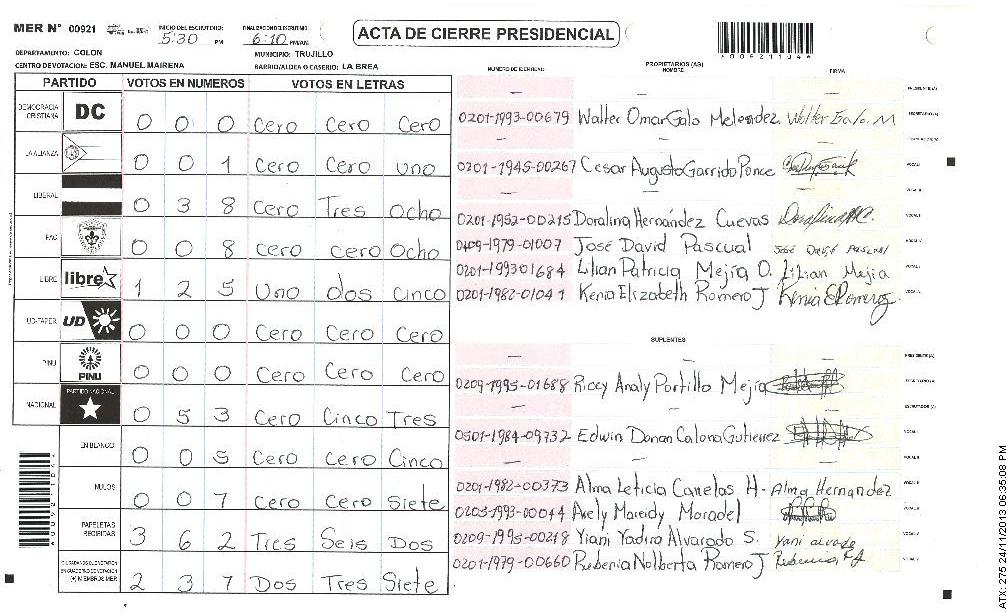 MER Nº 00921 INICIO DEL ESCRUTINIO: 5:30 PM FINALIZACION DEL ESCRUTINIO: 6:10 PM/AM. ACTA DE CIERRE PRESIDENCIAL
DEPARTAMENTO: COLON MUNICIPIO: TRUJILLO
CENTRO DE VOTACION: ESC. MANUEL MAIRENA BARRIO/ALDEA O CASERIO: LA BREA
PARTIDO VOTOS EN NUMEROS VOTOS EN LETRAS
DEMOCRACIA CRISTIANA DC 0 0 0 Cero Cero Cero
LA ALIANZA 0 0 1 Cero Cero Uno
LIBERAL 0 3 8 Cero Tres Ocho
PAC 0 0 8 Cero cero Ocho
LIBRE libre 1 2 5 Uno dos Cinco
UD-FAPER UD 0 0 0 Cero Cero Cero
PINU PINU 0 0 0 Cero Cero Cero
NACIONAL PARTIDO NACIONAL 0 5 3 Cero Cinco Tres
EN BLANCO 0 0 5 Cero Cero Cinco
NULOS 0 0 7 Cero Cero Siete
PAPELETAS RECIBIDAS 3 6 2 Tres Seis Dos
CIUDADANOS QUE VOTARON EN CUADERNO DE VOTACION (+) MIEMBROS MER 2 3 7 Dos Tres Siete
NUMERO DE IDENTIDAD PROPIETARIOS (AS) NOMBRE FIRMA
PRESIDENTE (A)
0201-1993-00679 Walter Omar Galo Melendez SECRETARIO (A)
0201-1945-00267 Cesar Augusto Garrido Ponce VOCAL I
0201-1952-00215 Doralina Hernández Cuevas
0209-1979-01007 José David Pascual José David Pascual
0201-199301684 Lilian Patricia Mejía O. Lilian Mejia
0201-1982-01041 Kenia Elizabeth Romero J Kenia E Romero J.
SUPLENTES
PRESIDENTE (A)
0209-1995-01688 Riccy Analy Portillo Mejía SECRETARIO (A)
ESCRUTADOR (A)
0501-1984-09732 Edwin Donan Calona Gutierrez VOCAL I
0201-1982-00373 Alma Leticia Canelas H- Alma Hernandez
0203-1993-00044 Mareidy Moradel
0209-1995-00218 Yiani Yadira Alvarado S. Yani alvarado
0201-1979-00660 Rubenia Nolberta Romero J
*00921104*
ATX: 275 24/11/2013 06:35:08 PM